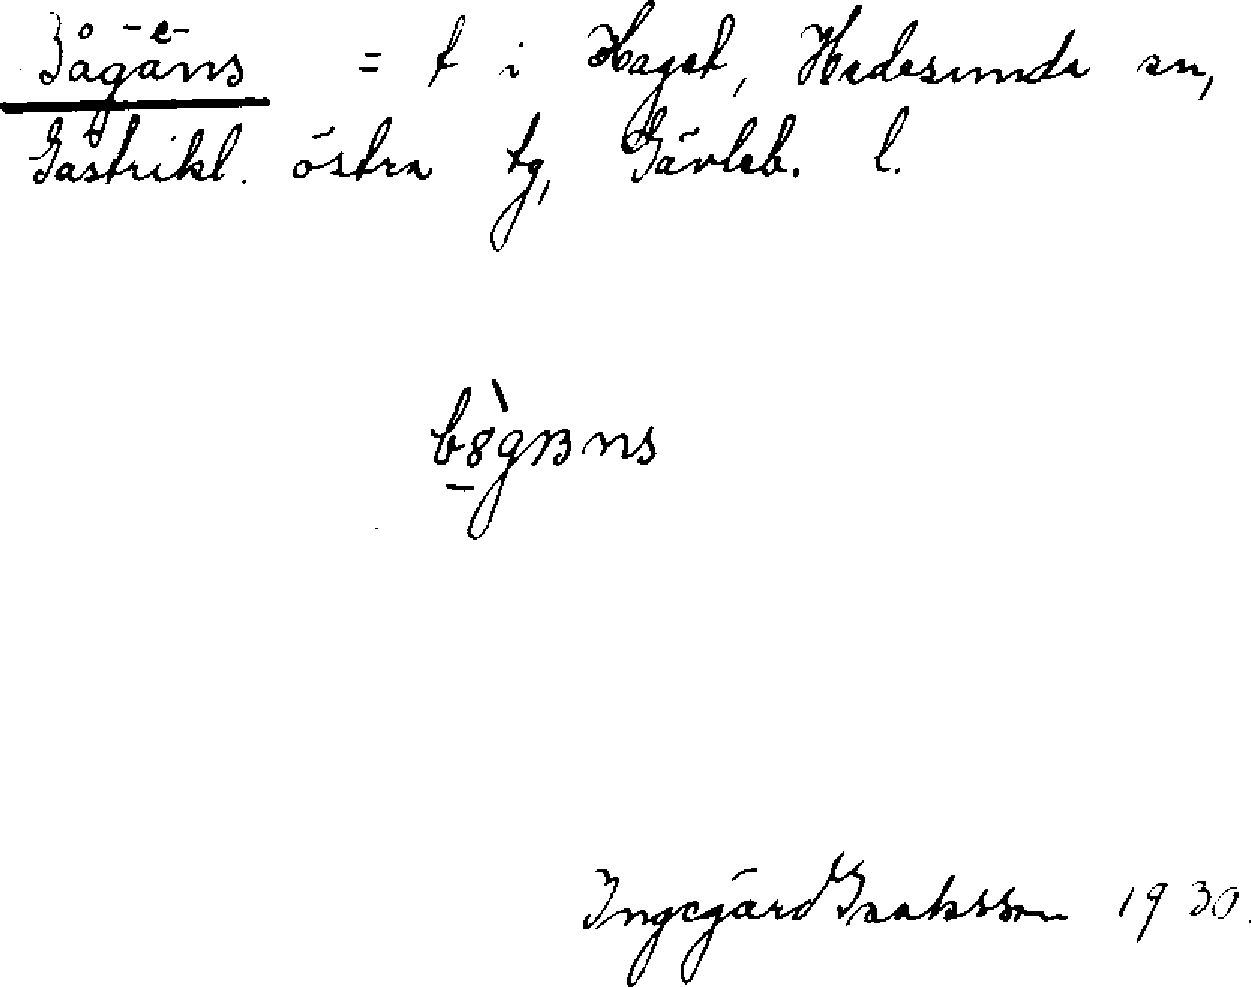 Bågäns = t i Haget, Hedesunda sn,
Gästrikl. östra tg, Gävleb. l.
Ingegärd Isaksson 1930.